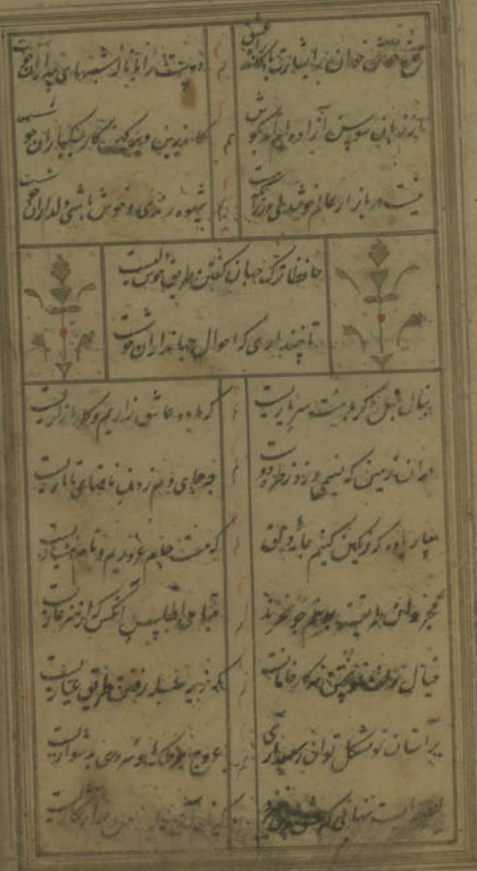 مرغ خوشخوان را بشارت باد کاندر راه عشق دوست را با ناله شبهای بیداران خوشست
از زبان سوسن آزاده ام آمد بگوش کاندرین دیر کهن کار سبکباران خوشست
نیست در بازار عالم خوشدلی ور زانکه هست شیوه رندی و خوش باشی خوشست
حافظا ترک جهان گفتن طریق خوشدلیست
تا نپنداری که احوال جهانداران خوشست
بنال بلبل اگر با منت سر یاریست که ما دو عاشق زاریم و کار ما زاریست
در آن زمین که نسیمی وزد ز طره دوست چه جای دم زدن نافهای تاتاریست
بیار باده که رنگین کنیم جامه زرق که مست جام غروریم و نام هشیاریست
نیم جو نخرند قبای اطلس آنکس که از هنر عاریست
خیال زلف تو پختن نه کار خامانست که زیر سلسله رفتن طریق عیاریست
بر آستان تو مشکل توان رسید آری عروج بر فلک سروری بدشواریست
نهانی که عشق